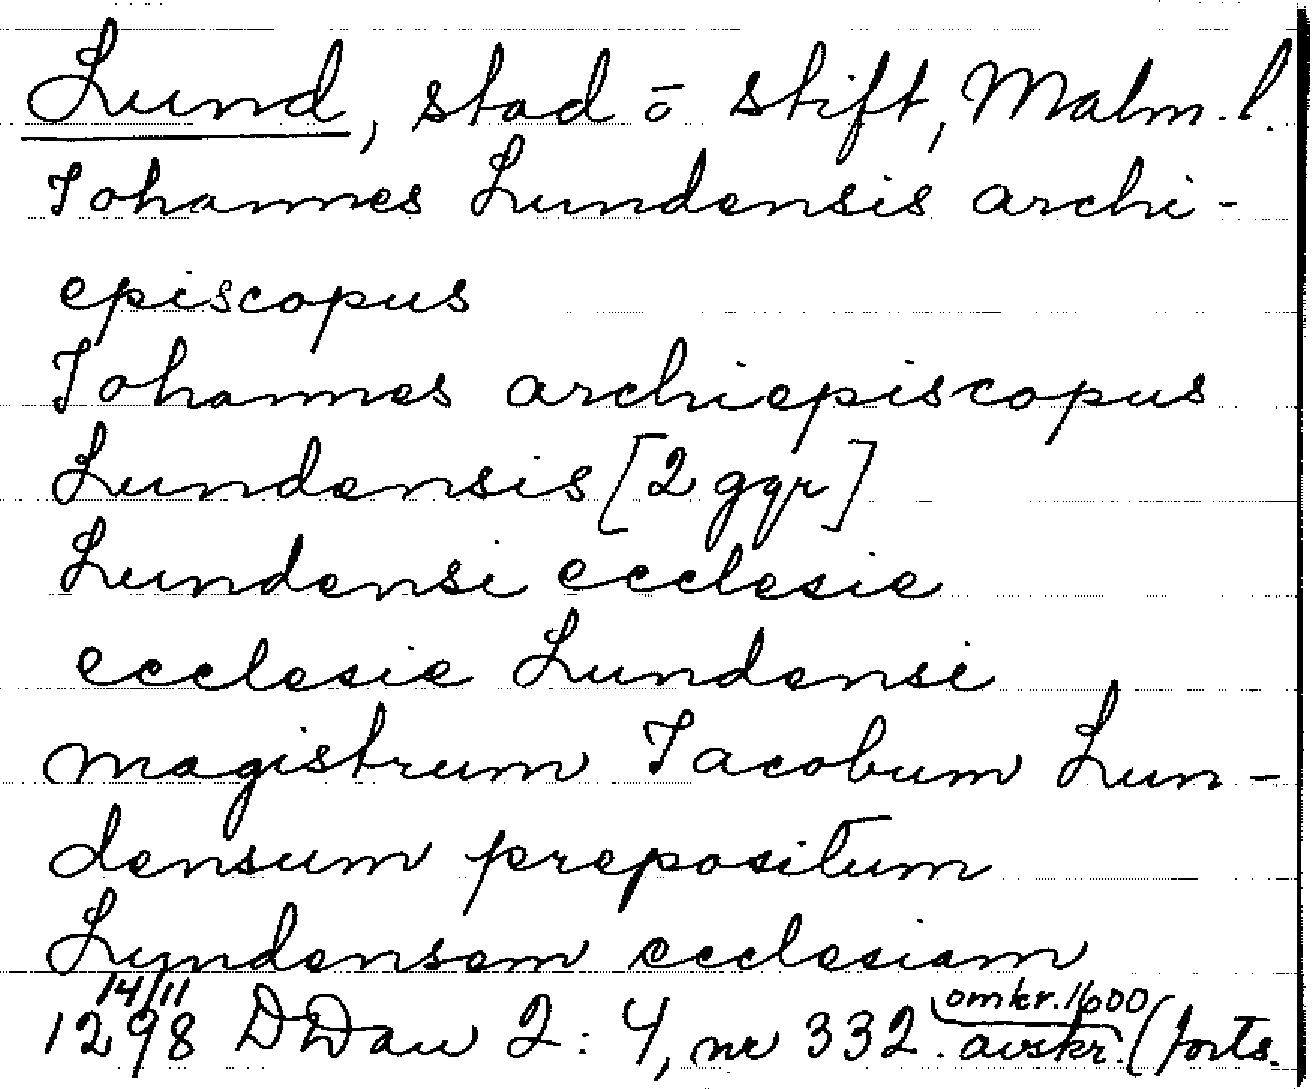 Lund, stad o stift, Malm. l.
Johannes Lundensis archi-
episcopus
Johannes archiepiscopus
Lundensis [2 ggr]
Lundensi ecclesie
ecclesie Lundensi
magistrum Jacobum Lun-
densum prepositum
Lundensem ecclesiam
14/11 omkr. 1600
1298 DDan 2: 4, nr 332. avskr. (forts.